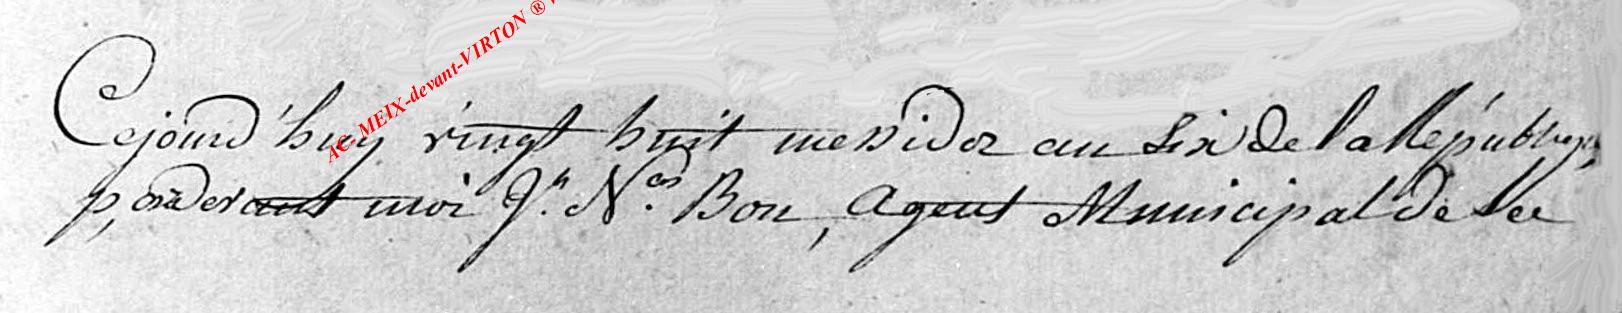 AC-MEIX-devant-VIRTON ®
Cejourd'huy vingt huit messidor an six de la Républiq,
pardevant moi Jn. Ncas. Bon, agent Municipal de